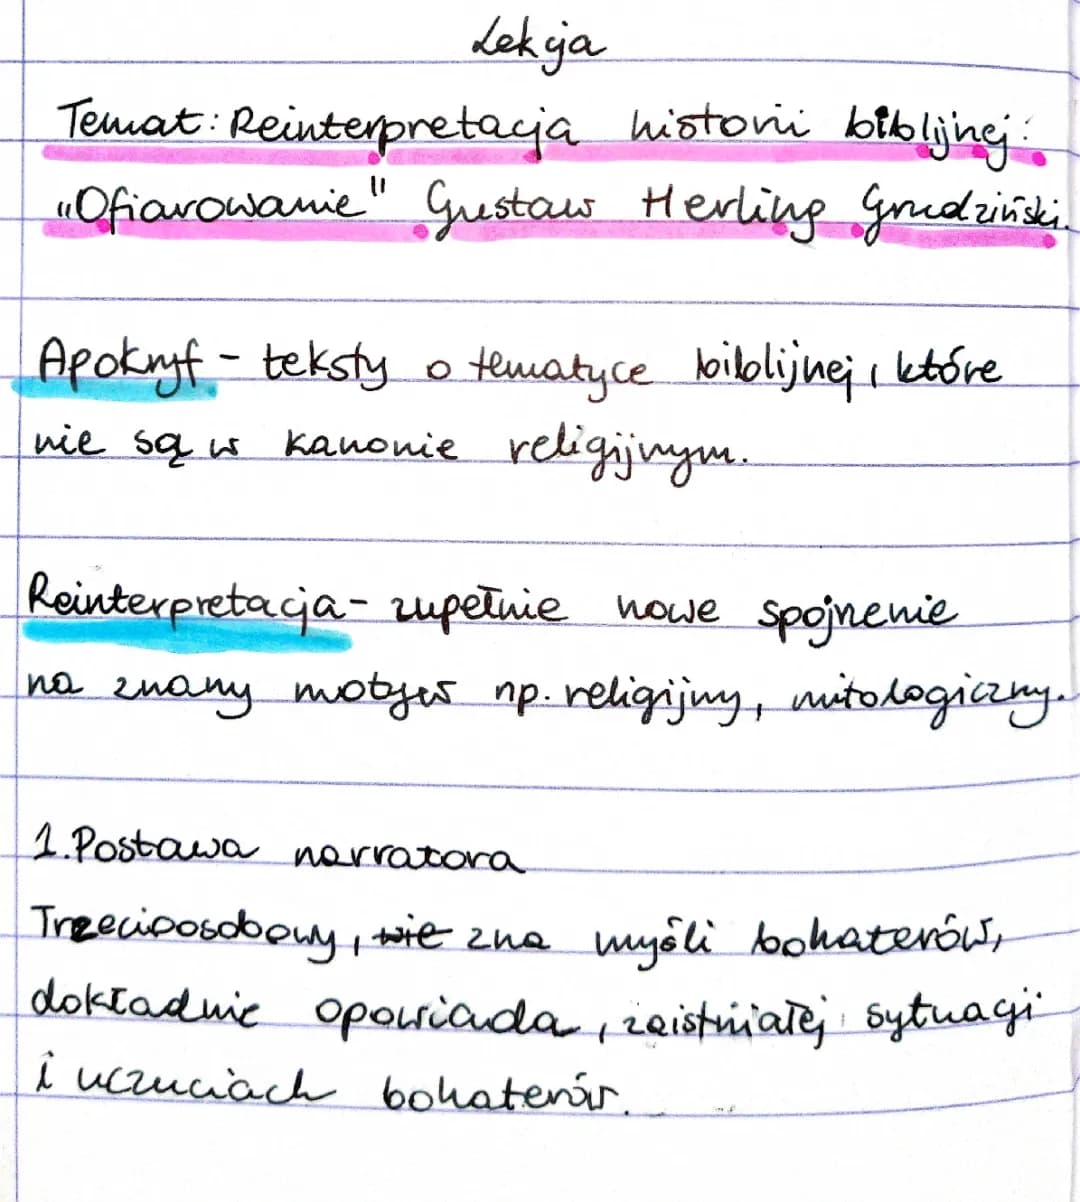 Lekcja
Temat: Reinterpretacja historii biblijnej:
„Ofiarowanie" Gustaw Herling Grudziński.
Apokryf - teksty o tematyce biblijnej, które
nie są w kanonie religijnym.
Reinterpretacja - zupełnie nowe spojrzenie
na znany motyw np. religijny, mitologiczny.
1. Postawa narratora
Trzecioosobowy, wie zna myśli bohaterów,
dokładnie opowiada, zaistniałej sytuacji
i uczuciach bohaterów.